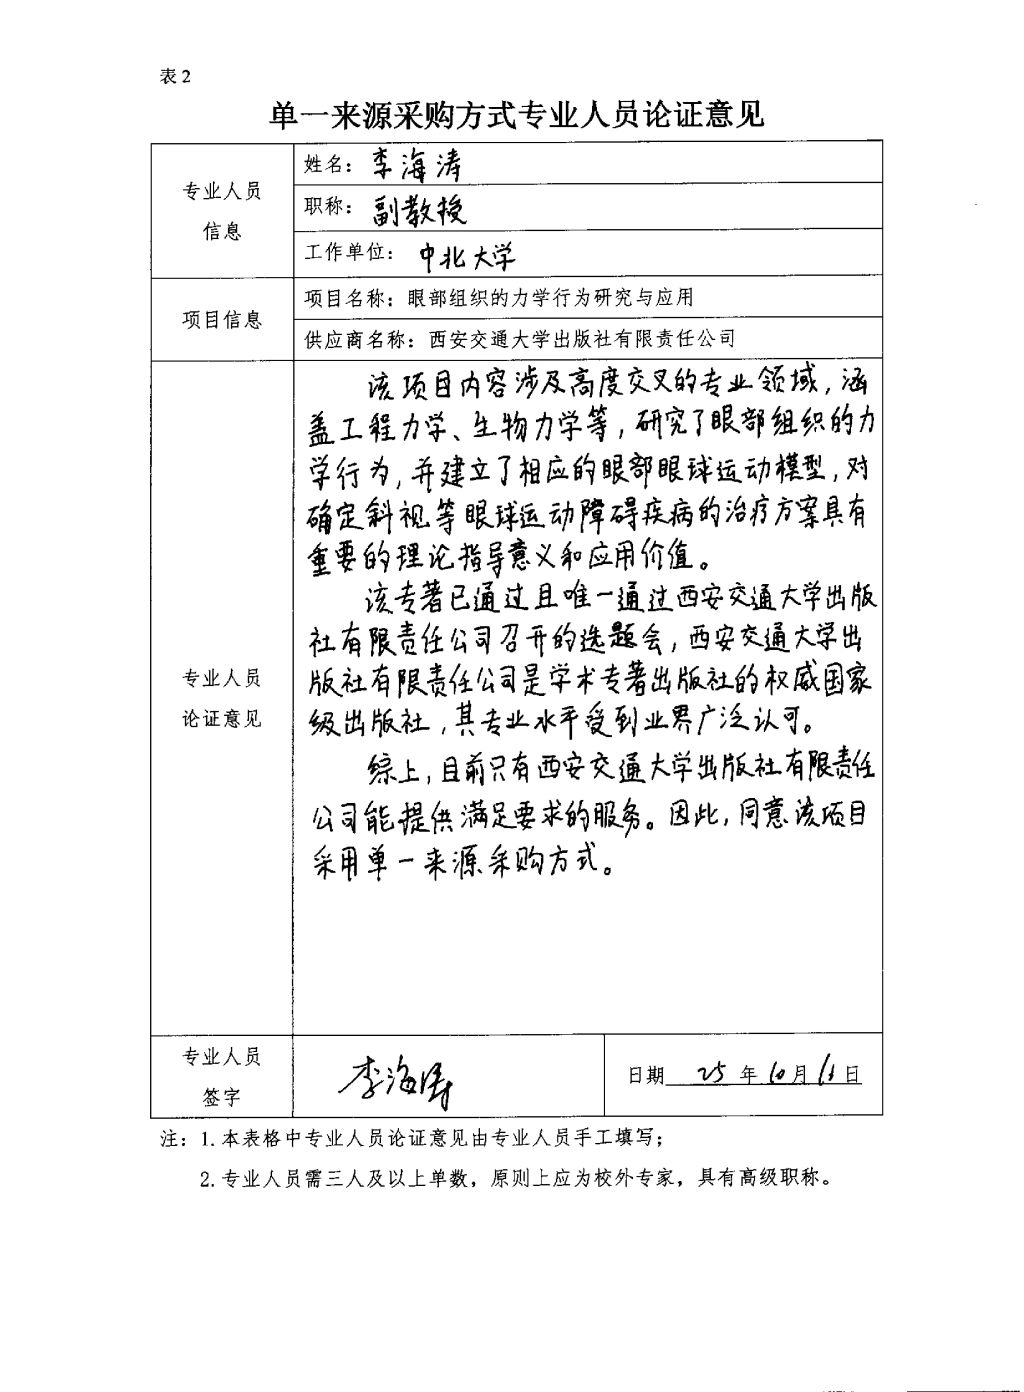 表2
单一来源采购方式专业人员论证意见
专业人员
信息
姓名：李海涛
职称：副教授
工作单位：中北大学
项目信息
项目名称：眼部组织的力学行为研究与应用
供应商名称：西安交通大学出版社有限责任公司
专业人员
论证意见
该项目内容涉及高度交叉的专业领域，涵
盖工程力学、生物力学等，研究了眼部组织的力
学行为，并建立了相应的眼部眼球运动模型，对
确定斜视等眼球运动障碍疾病的治疗方案具有
重要的理论指导意义和应用价值。
该专著已通过且唯一通过西安交通大学出版
社有限责任公司召开的选题会，西安交通大学出
版社有限责任公司是学术专著出版社的权威国家
级出版社，其专业水平受到业界广泛认可。
综上，目前只有西安交通大学出版社有限责任
公司能提供满足要求的服务。因此，同意该项目
采用单一来源采购方式。
专业人员
签字
李海涛
日期 25 年 10 月 日
注：1.本表格中专业人员论证意见由专业人员手工填写；
2.专业人员需三人及以上单数，原则上应为校外专家，具有高级职称。